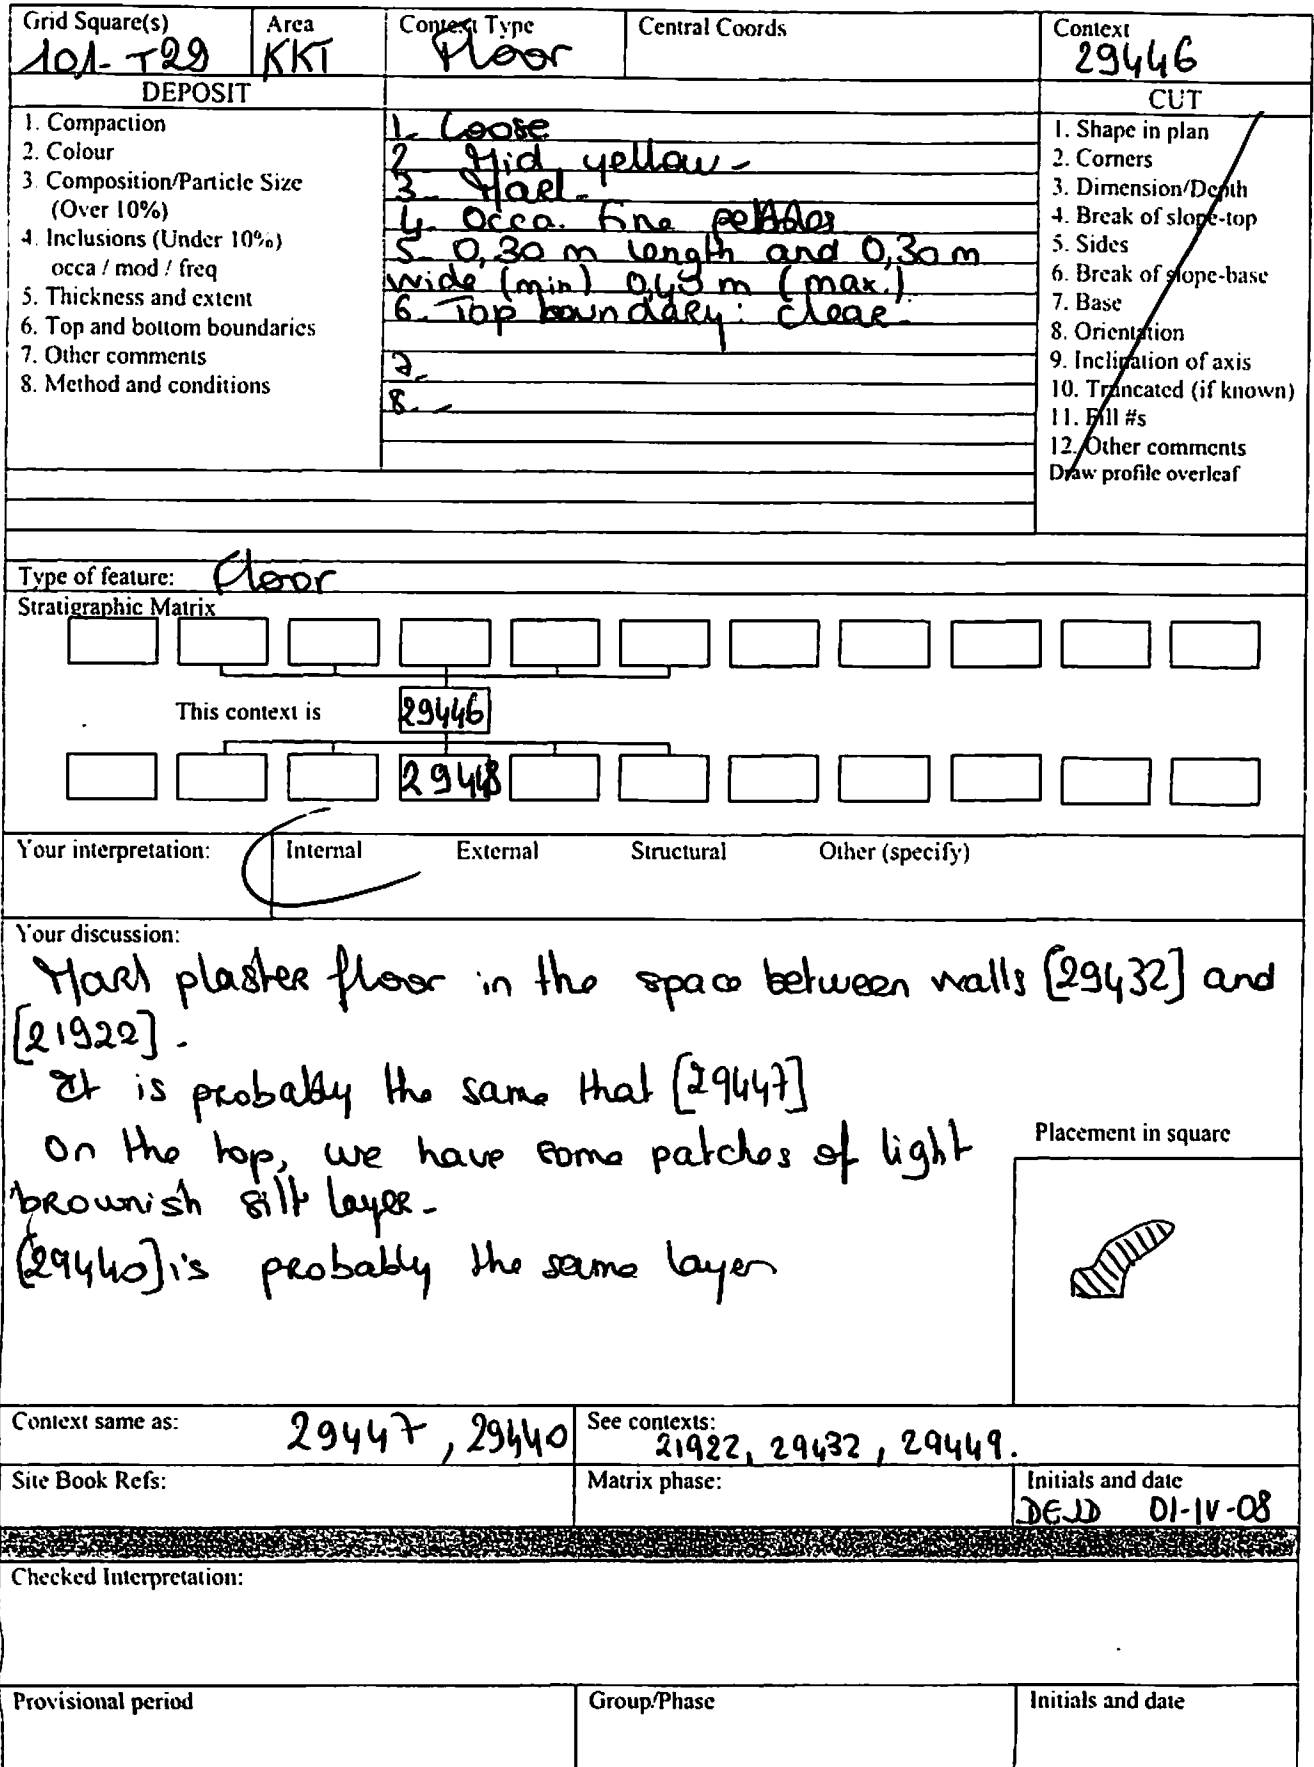 Grid Square(s) Area Context Type Central Coords Context
101-T29 KKT Floor 29446
DEPOSIT CUT
1. Compaction
2. Colour
3. Composition/Particle Size
(Over 10%)
4. Inclusions (Under 10%)
occa / mod / freq
5. Thickness and extent
6. Top and bottom boundaries
7. Other comments
8. Method and conditions
1. Loose
2 Mid yellow -
3 - Marl -
4. Occa. fine pebbles
5 - 0,30 m length and 0,30 m
wide (min) 0,45 m (max.)
6. Top boundary: clear -
7.
8. -
1. Shape in plan
2. Corners
3. Dimension/Depth
4. Break of slope-top
5. Sides
6. Break of slope-base
7. Base
8. Orientation
9. Inclination of axis
10. Truncated (if known)
11. Fill #s
12. Other comments
Draw profile overleaf
Type of feature: Floor
Stratigraphic Matrix
This context is 29446
29448
Your interpretation: Internal External Structural Other (specify)
Your discussion:
Marl plaster floor in the space between walls [29432] and
[21922] -
It is probably the same that [29447]
On the top, we have some patches of light
brownish silt layer -
[29440] is probably the same layer
Placement in square
Context same as: 29447, 29440 See contexts: 21922, 29432, 29449.
Site Book Refs: Matrix phase: Initials and date
DEJD 01-IV-08
Checked Interpretation:
Provisional period Group/Phase Initials and date